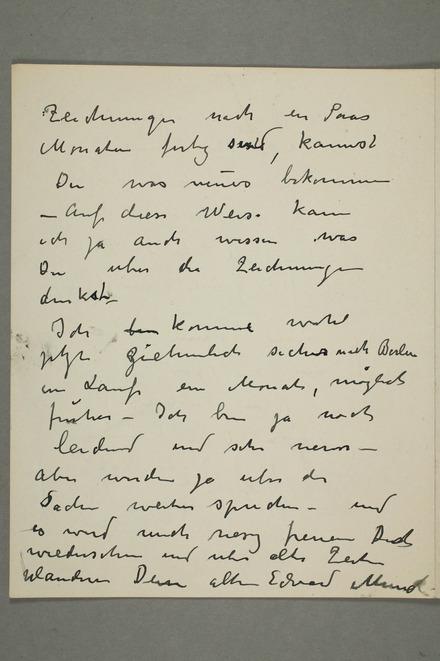 Zeichnungen nach en Paar
Monaten fertig sind, kannst
Du was neues bekommen
– Auf diese Weise kann
ich ja auch wissen was
Du uber die Zeichnungen
denkst –
Ich bin komme wohl
jetzt ziehmlich sicher nach Berlin
im Laufe ein Monats, möglich
früher – Ich bin ja noch
leidend und sehr nervos –
aber werden ja uber die
Sachen weiter sprechen – und
es wird mich freuen Dich
wiedersehen und uber alte Zeiten
Dein alter Edvard Munch